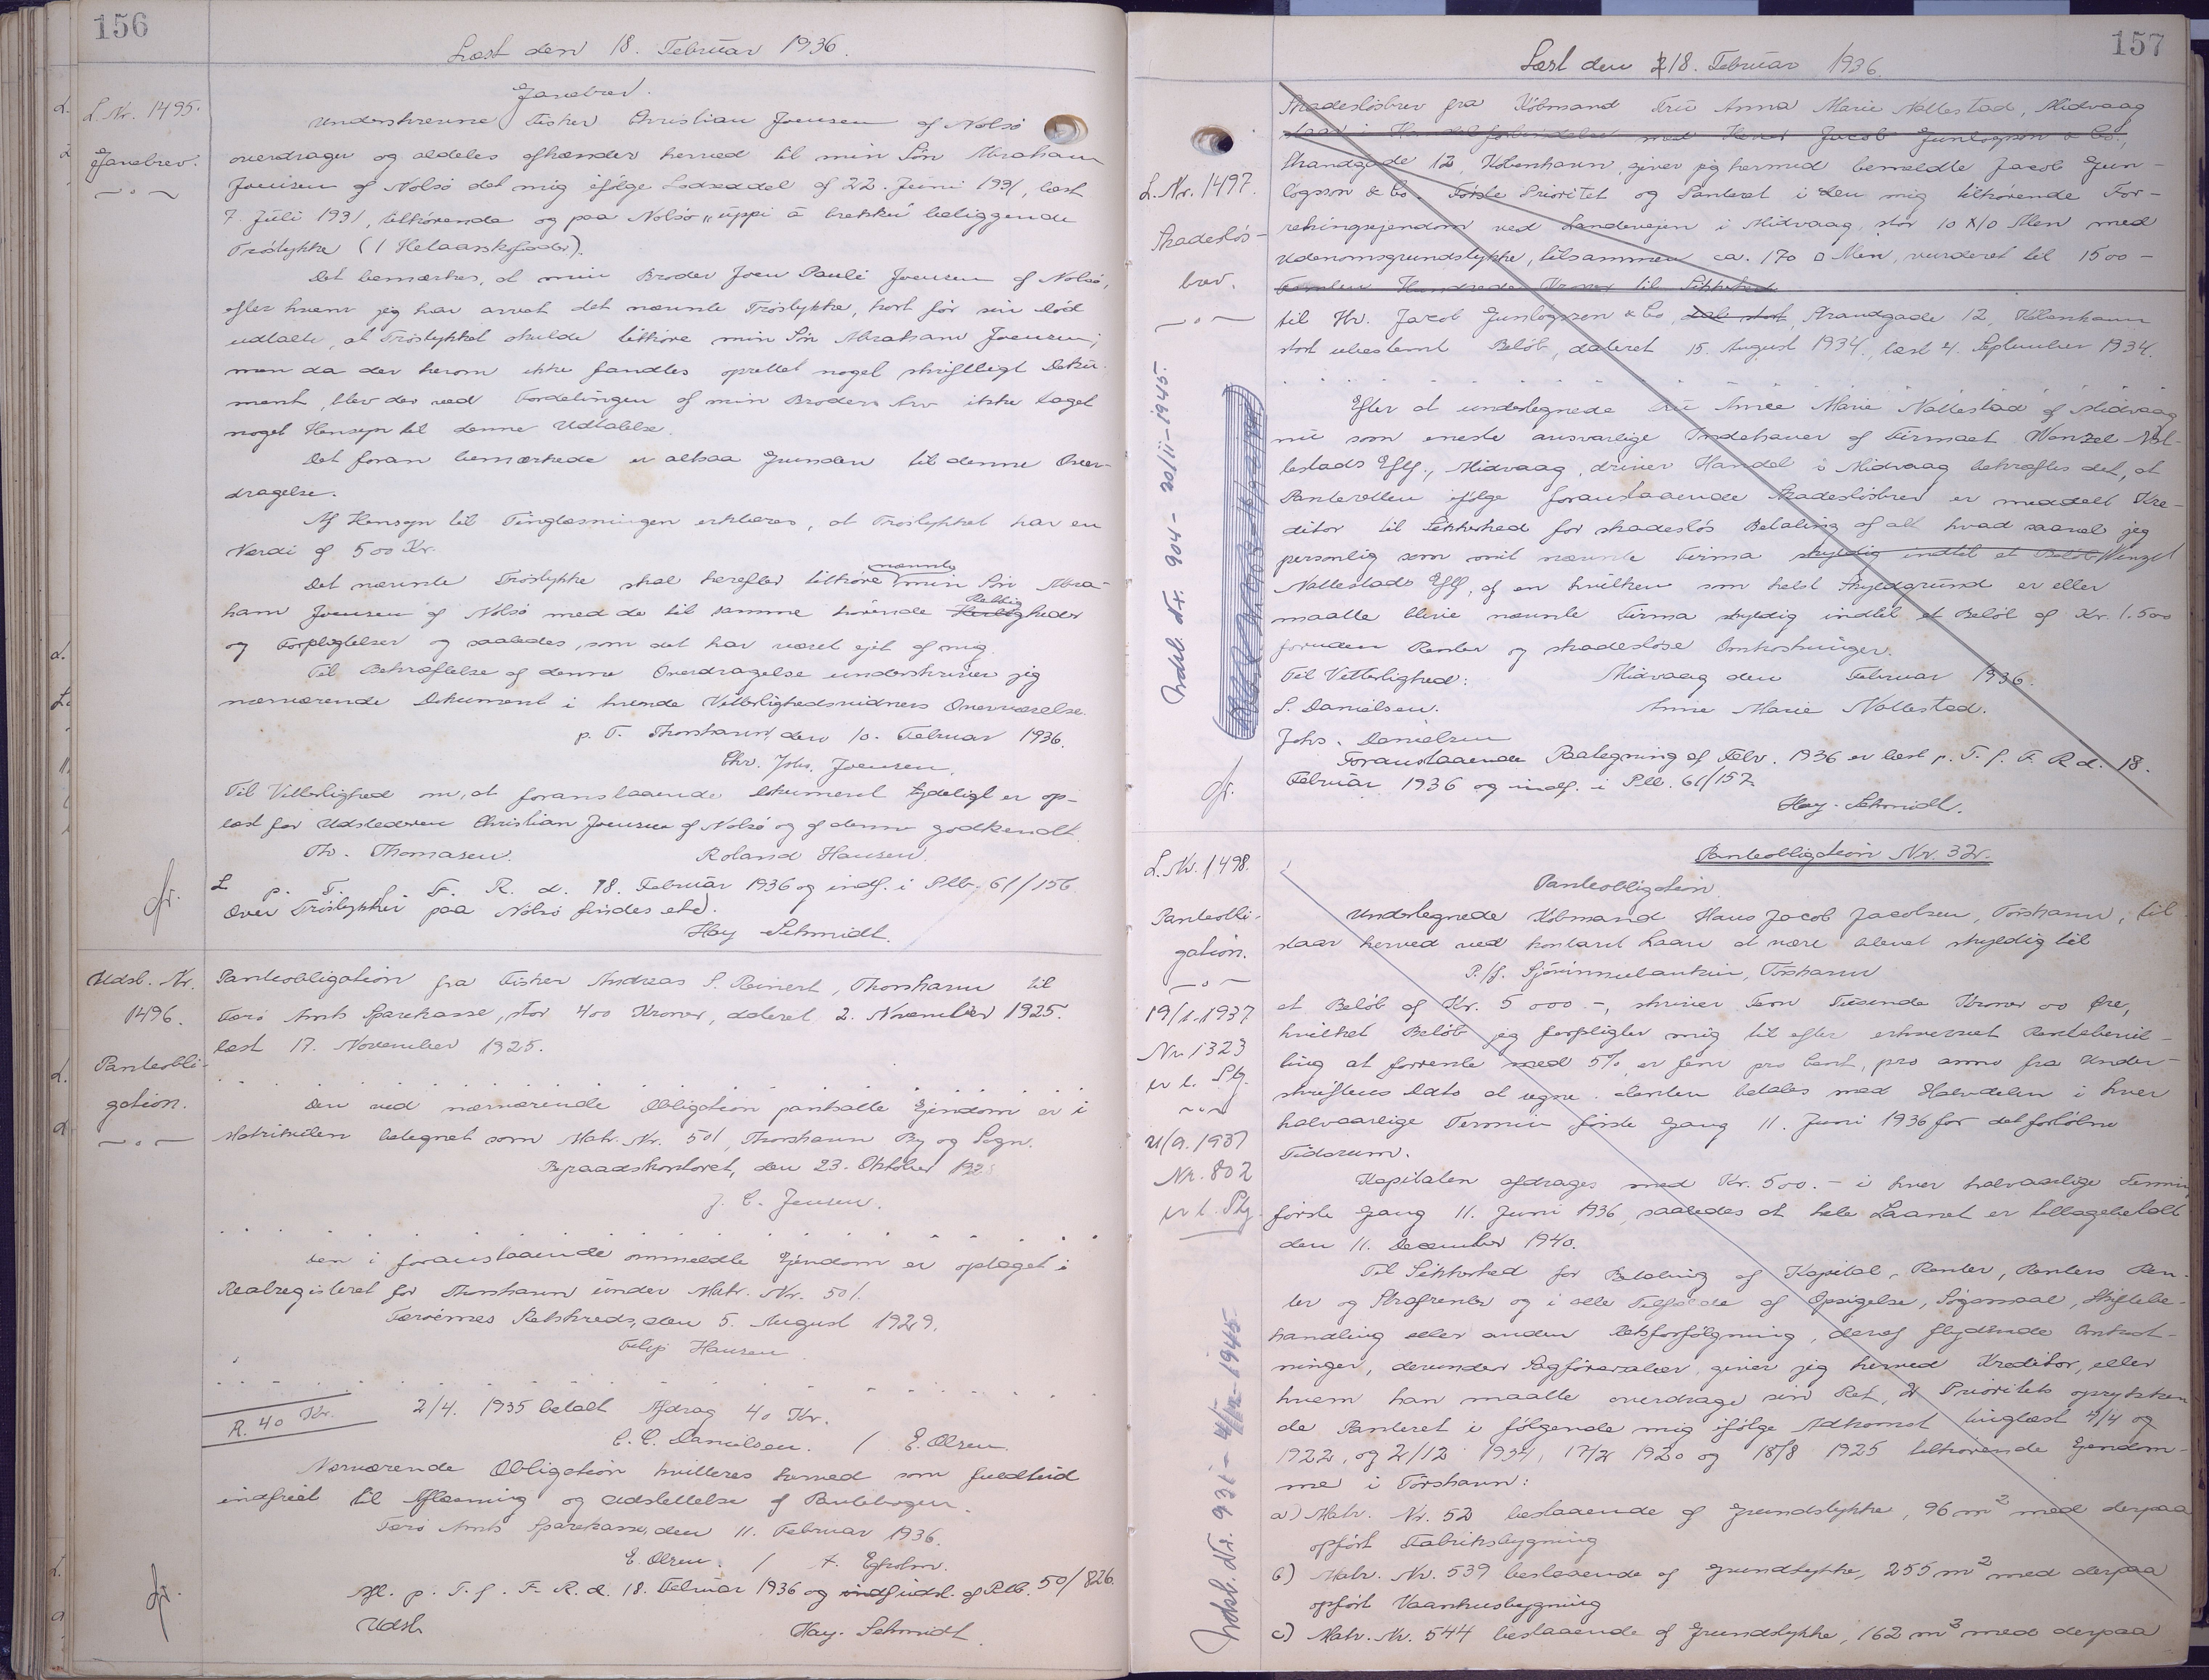 156
Læst den 18. Februar 1936.
L. Nr. 1495.
Gavebrev.
Gavebrev.
Underskrevne Fisker Christian Joensen af Nolsö
overdrager og aldeles afhænder herved til min Sön Abraham
Joensen af Nolsö det mig ifölge Lodseddel af 22. Juni 1931, læst
7. Juli 1931, tilhörende og paa Nolsö „uppi á brekku" beliggende
Tröstykke (1 Helaarskofoder).
Det bemærkes, at min Broder Joen Pauli Joensen af Nolsö,
efter hvem jeg har arvet det nævnte Tröstykke, kort för sin Död
udtalte, at Tröstykket skulde tilhöre min Sön Abraham Joensen;
men da der herom ikke fandtes oprettet noget skriftligt Doku-
ment, blev der ved Fordelingen af min Broders Arv ikke taget
noget Hensyn til denne Udtalelse.
Det foran bemærkede er altsaa Grunden til denne Over-
dragelse.
Af Hensyn til Tinglæsningen erklæres, at Tröstykket har en
Værdi af 500 Kr.
Det nævnte Tröstykke skal herefter tilhöre nævnte min Sön Abra-
ham Joensen af Nolsö med de til samme hörende Rettigheder
og Forpligtelser og saaledes, som det har været ejet af mig.
Til Bekræftelse af denne Overdragelse underskriver jeg
nærværende Dokument i hvende Vitterlighedsvidners Overværelse.
p. T. Thorshavn, den 10. Februar 1936.
Chr. Johs. Joensen.
Til Vitterlighed om, at foranstaaende Dokument tydeligt er op-
læst for Udstederen Christian Joensen af Nolsö og af denne godkendt
Th. Thomasen. Roland Hansen.
L p. T. f. F. R. d. 18. Februar 1936 og indf. i Plb. 61/156
Over Tröstykker paa Nolsö findes etc.
Hay-Schmidt.
Udsl. Nr.
1496.
Panteobli-
gation.
Panteobligation fra Fisker Andreas S. Reinert, Thorshavn til
Færö Amts Sparekasse, stor 400 Kroner, dateret 2. November 1925.
læst 17. November 1925.
Den ved nærværende Obligation pantsatte Ejendom er i
Matrikulen betegnet som Matr. Nr. 501, Thorshavn By og Sogn.
Byraadskontoret, den 23. Oktober 192
J. C. Jensen.
Den i foranstaaende ommeldte Ejendom er optaget i
Realregisteret for Thorshavn under Matr. Nr. 501.
Færöernes Retskreds, den 5. August 1929.
Filip Hansen
R. 40 Kr.
2/4. 1935 betalt Afdrag 40 Kr.
C. C. Danielsen. / E. Olsen.
Nærværende Obligation kvitteres herved som fuldtud
indfriet til Aflæsning og Udslettelse af Pantebogen.
Færö Amts Sparekasse, den 11. Februar 1936.
E. Olsen. / Egholm.
Afl. p. T. f. F. R. d. 18. Februar 1936 og indf udsl. af Plb. 50/826.
Udsl. Hay-Schmidt.
157
Læst den 18. Februar 1936.
L. Nr. 1497.
Skadeslös-
brev.
Skadeslösbrev fra Köbmand Fru Anna Marie Nallestad, Midvaag
staar i Handelsforbindelse med Herrer Jacob Gunlögsson & Co.,
Strandgade 12, Köbenhavn, giver jeg hermed bemeldte Jacob Gun-
lögsson & Co. Förste Prioritet og Panteret i den mig tilhörende For-
retningsejendom ved Landevejen i Midvaag, stor 10 X 10 Alen med
Udenomsgrundstykke, tilsammen ca. 170 □ Alen, vurderet til 1500-
Femten Hundrede Kroner til Sikkerhed
til Hr. Jacob Gunlögsson & Co, Strandgade 12, Köbenhavn
stort ubestemt Belöb, dateret 15. August 1934, læst 4. September 1934.
Efter at undertegnede Fru Anne Marie Nallestad af Midvaag
nu som eneste ansvarlige Indehaver af Firmaet Wenzel Nal-
lestads Eftf., Midvaag, driver Handel i Midvaag bekræftes det, at
Panteretten ifölge foranstaaende Skadeslösbrev er meddelt Kre-
ditor til Sikkerhed for skadeslös Betaling af alt hvad saavel jeg
personlig som mit nævnte Firma skyldig indtil et Belöb Wenzel
Nallestads Eftf, af en hvilken som helst Skyldgrund er eller
maatte blive nævnte Firma skyldig indtil et Belöb af Kr. 1.500
foruden Renter og skadeslöse Omkostninger.
Til Vitterlighed: Midvaag den Februar 1936.
S. Danielsen. Anne Marie Nallestad.
Johs. Danielsen
Foranstaaende Paategning af Febr. 1936 er læst p. T. f. F. R. d. 18.
Februar 1936 og indf. i Plb. 61/157.
Hay-Schmidt.
Udsl. Nr. 904 - 20/11-1945.
L. Nr. 1498.
Panteobli-
gation.
19/1.1937
Nr. 1323
21/9.1937
Nr. 802
Udsl. Nr. 931 - 4/12-1945.
Panteobligation Nr. 32.
Panteobligation
Undertegnede Köbmand Hans Jacob Jacobsen, Tórshavn, til-
staar herved ved kontant Laan at være blevet skyldig til
P/f. Sjóvinnubankin, Tórshavn
et Belöb af Kr. 5000.-, skriver Fem Tusinde Kroner 00 Øre,
hvilket Belöb jeg forpligter mig til efter erhvervet Rentebevil-
ling at forrente med 5%, er fem pro Cent, pro anno fra Under-
skriftens Dato at regne. Renten betales med Halvdelen i hver
halvaarlige Termin förste Gang 11. Juni 1936 for det forlöbne
Tidsrum.
Kapitalen afdrages med Kr. 500.- i hver halvaarlige Termin
förste Gang 11. Juni 1936, saaledes at hele Laanet er tilbagebetalt
den 11. December 1940.
Til Sikkerhed for Betaling af Kapital, Renter, Renters Ren-
ter og Strafrenter og i alle Tilfælde af Opsigelse, Sögsmaal, Skiftebe-
handling eller anden Retsforfölgning, deraf flydende Omkost-
ninger, derunder Sagförersalær, giver jeg herved Kreditor, eller
hvem han maatte overdrage sin Ret, Prioritets oprykken
de Panteret i fölgende mig ifölge Adkomst tinglæst 4/4 og
1922, og 2/12 1934, 17/2 1920 og 18/8 1925 tilhörende Ejendom-
me i Tórshavn:
a) Matr. Nr. 52 bestaaende af Grundstykke, 96 m² med derpaa
opfört Fabriksbygning
b) Matr. Nr. 539 bestaaende af Grundstykke, 255 m² med derpaa
opfört Vaanhusbygning
c) Matr. Nr. 544 bestaaende af Grundstykke, 162 m³ med derpaa